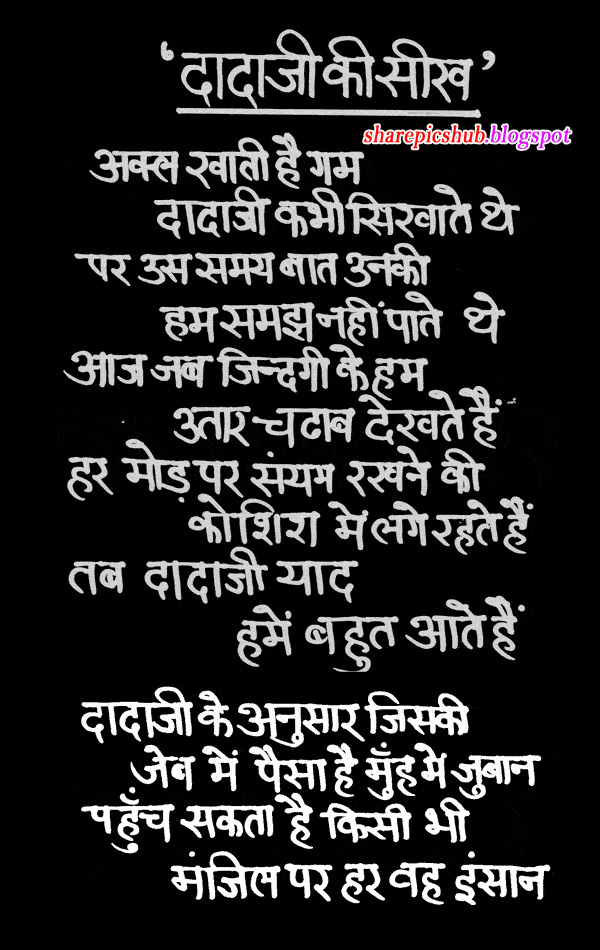 'दादाजी की सीख'
sharepicshub.blogspot
अक्ल खाती है गम
दादाजी कभी सिखाते थे
पर उस समय बात उनकी
हम समझ नहीं पाते थे
आज जब जिन्दगी के हम
उतार-चढाव देखते हैं
हर मोड़ पर संयम रखने की
कोशिश में लगे रहते हैं
तब दादाजी याद
हमें बहुत आते हैं
दादाजी के अनुसार जिसकी
जेब में पैसा है मुँह में जुबान
पहुँच सकता है किसी भी
मंजिल पर हर वह इंसान